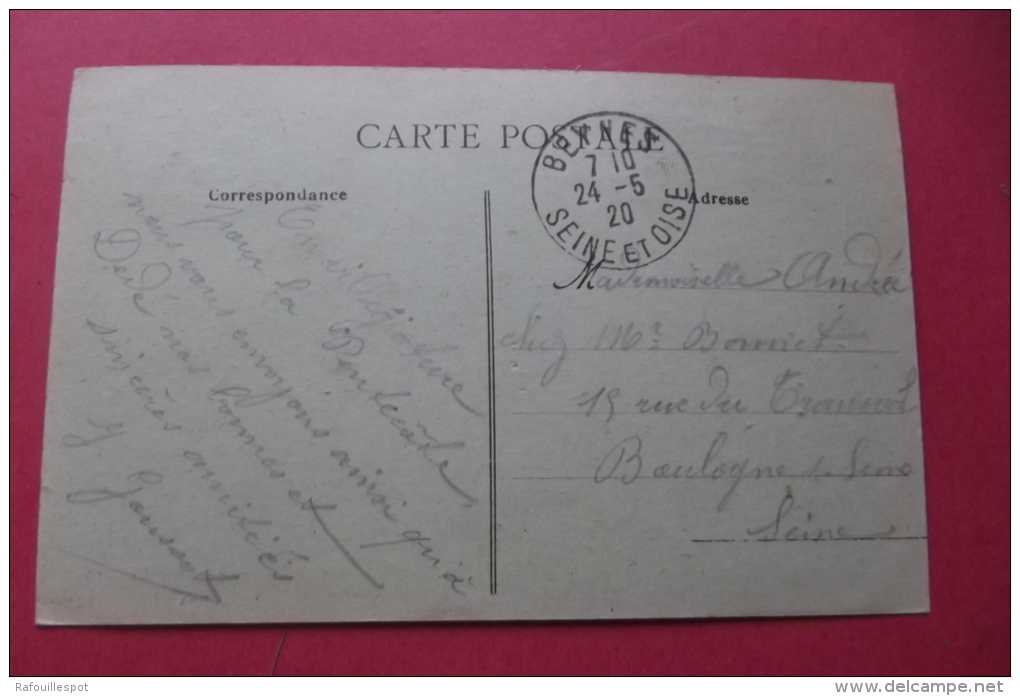 CARTE POSTALE
Correspondance
Adresse
BEYNES
7 10
24 -5
20
SEINE ET OISE
En villégiature
pour la Pentecôte,
nous vous envoyons ainsi qu'à
Dédé nos bonnes et
sincères amitiés
Mademoiselle Andrée
chez Mr Bonnet
15 rue du
Boulogne s. Seine
Seine
Rafouillespot
www.delcampe.net